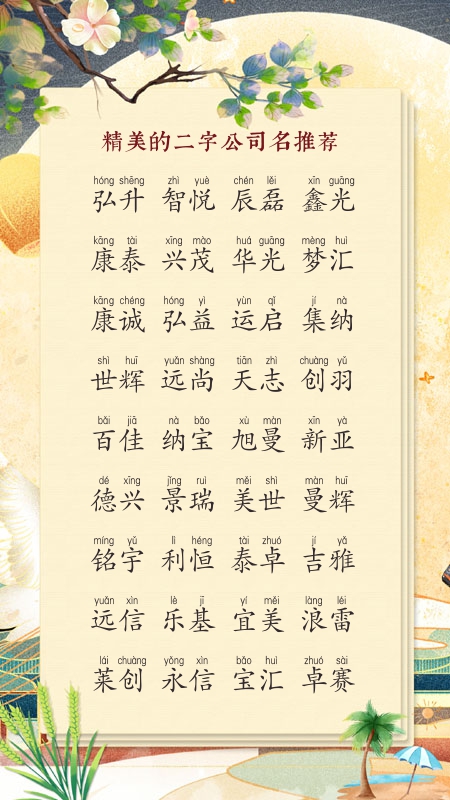 精美的二字公司名推荐
hóng shēng zhì yuè chén lěi xīn guāng
弘升 智悦 辰磊 鑫光
kāng tài xīng mào huá guāng mèng huì
康泰 兴茂 华光 梦汇
kāng chéng hóng yì yùn qǐ jí nà
康诚 弘益 运启 集纳
shì huī yuǎn shàng tiān zhì chuàng yǔ
世辉 远尚 天志 创羽
bǎi jiā nà bǎo xù màn xīn yà
百佳 纳宝 旭曼 新亚
dé xīng jǐng ruì měi shì màn huī
德兴 景瑞 美世 曼辉
míng yǔ lì héng tài zhuó jí yǎ
铭宇 利恒 泰卓 吉雅
yuǎn xìn lè jī yí měi làng léi
远信 乐基 宜美 浪雷
lái chuàng yǒng xìn bǎo huì zhuó sài
莱创 永信 宝汇 卓赛